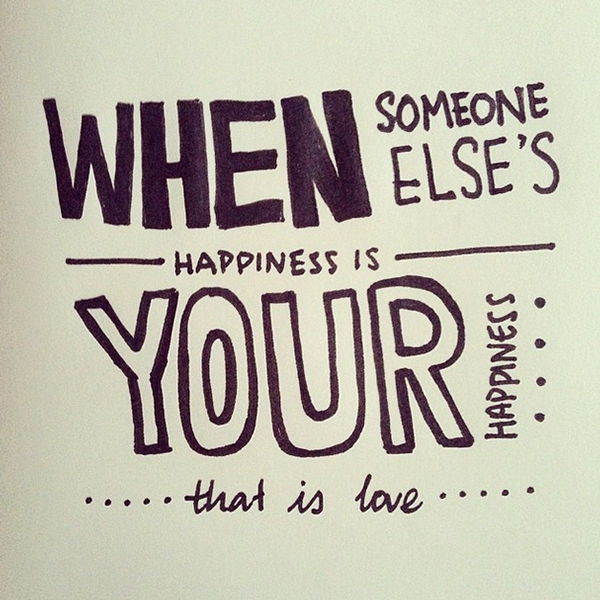 WHEN SOMEONE
ELSE'S
HAPPINESS IS
YOUR HAPPINESS
.....that is love.....